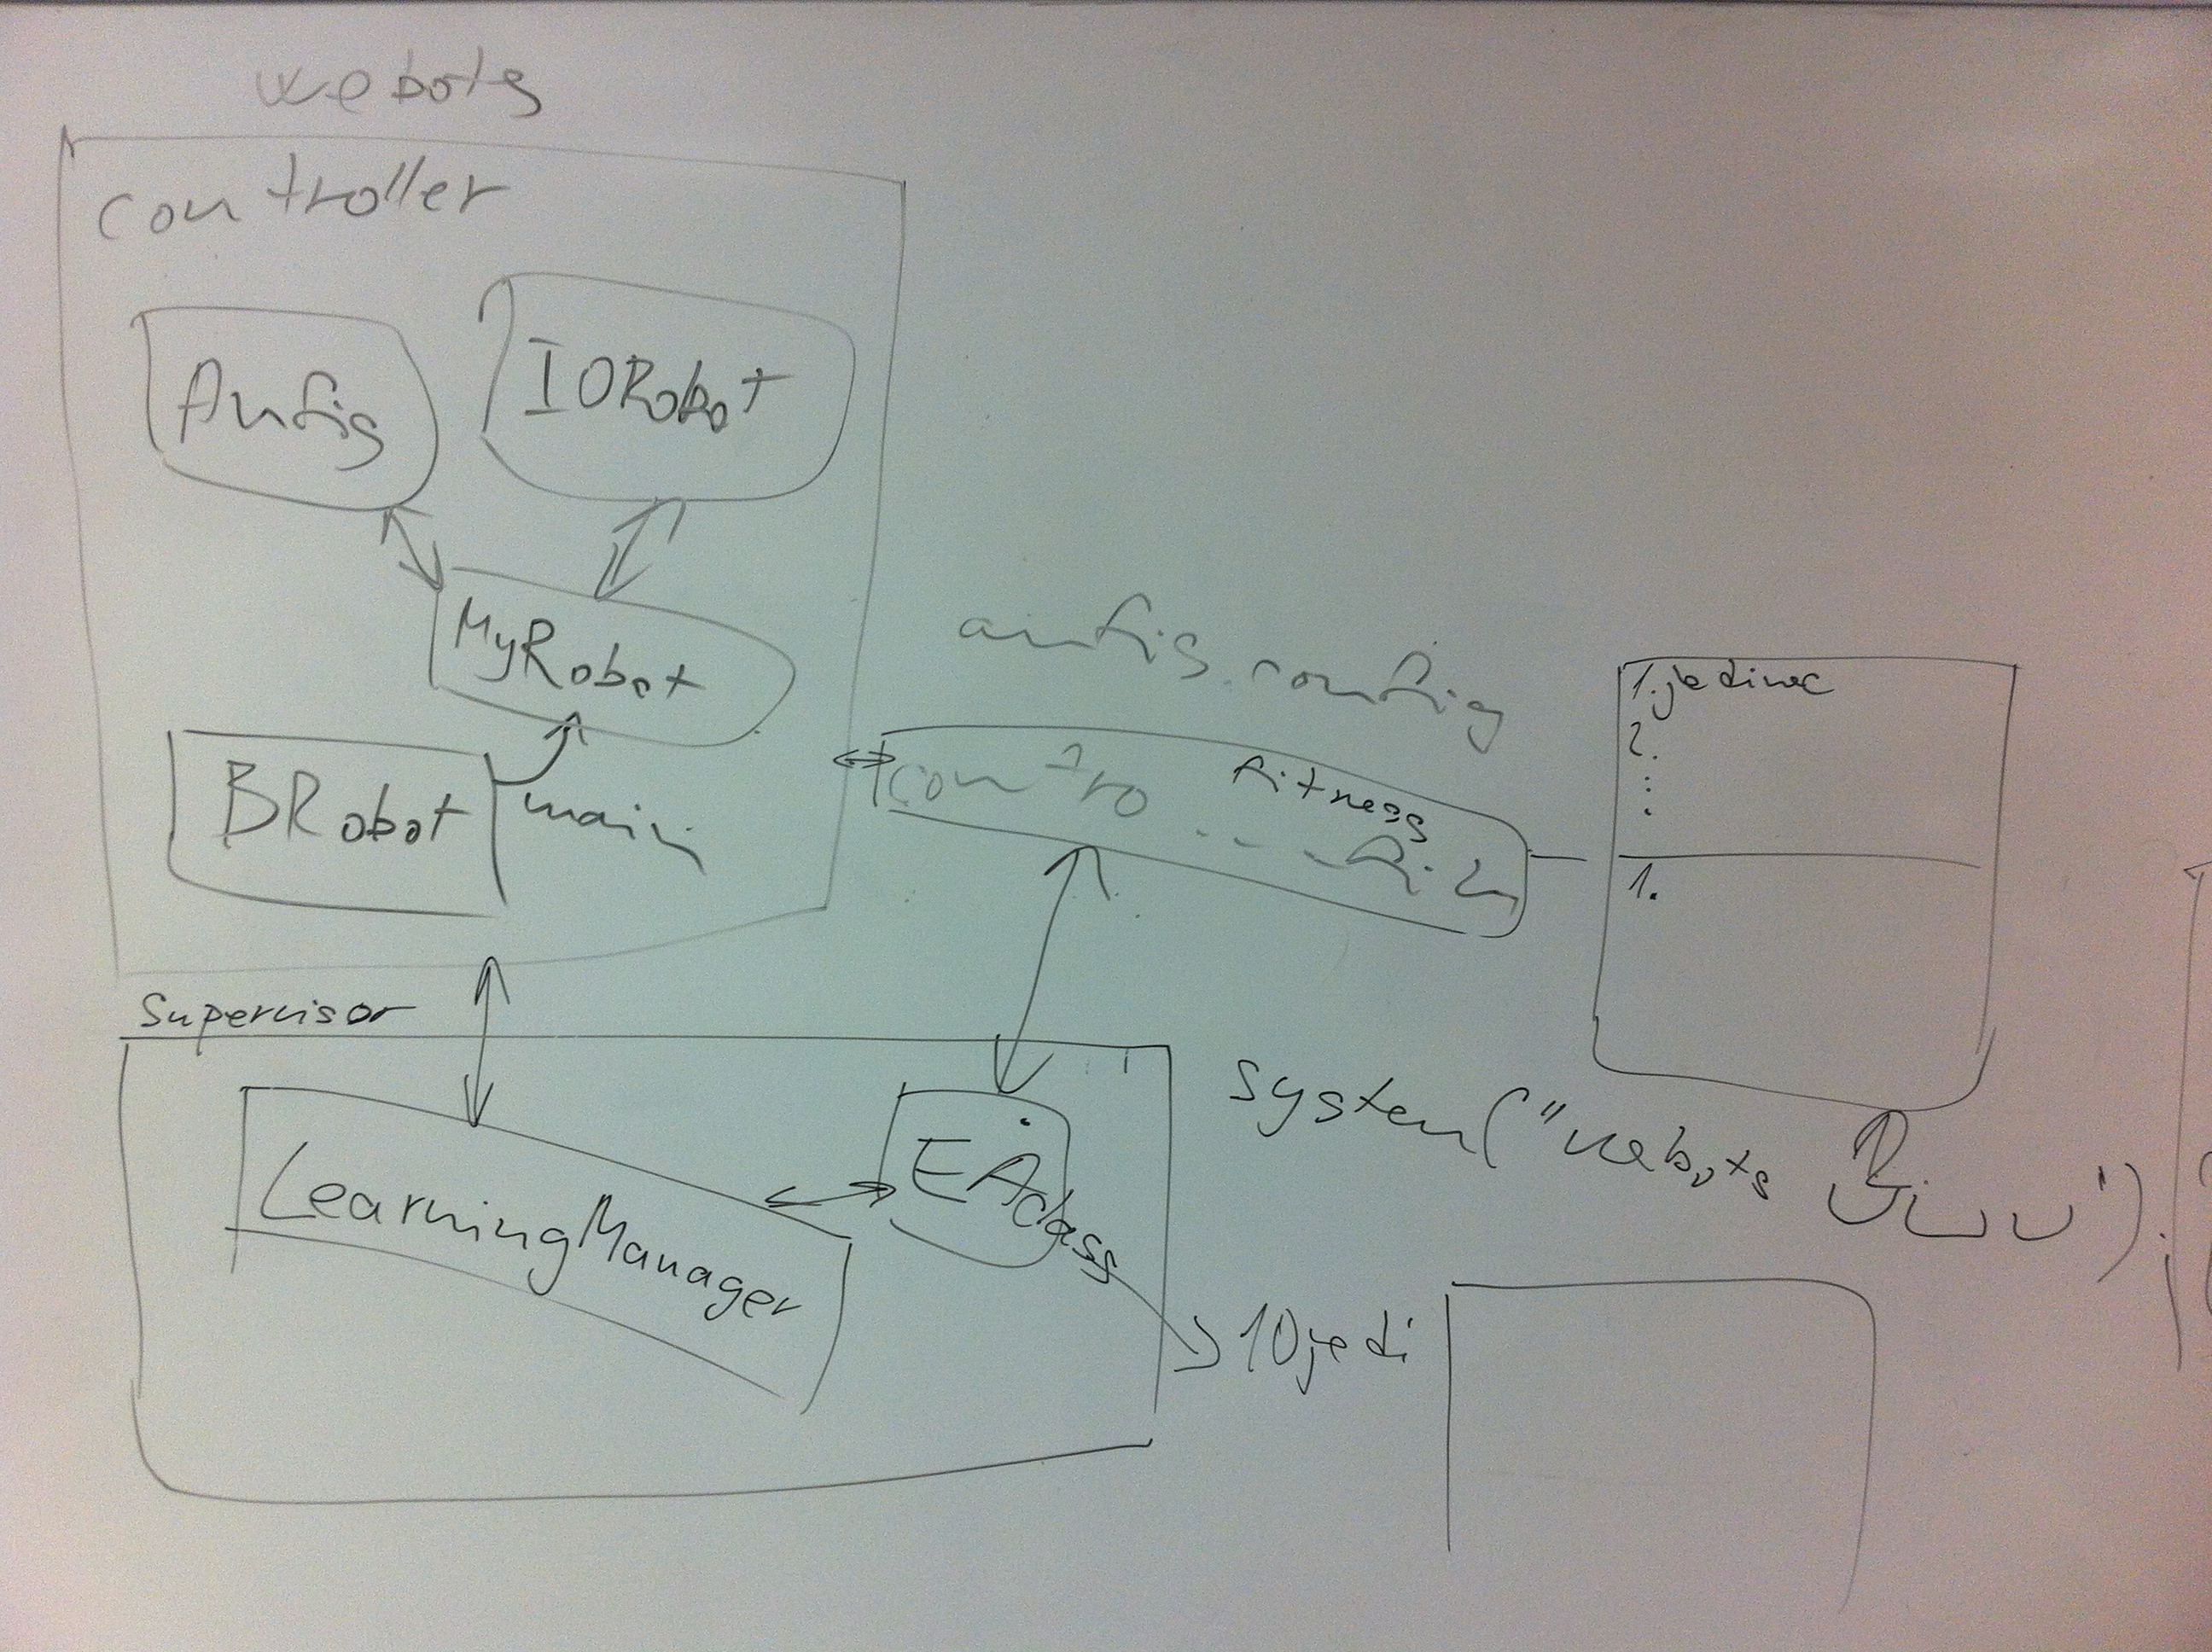 webots
controller
Anfis
IORobot
MyRobot
BRobot
main
anfis.config
contro
fitness
1. jedinec
2.
1.
Supervisor
LearningManager
EAclass
system("webots
10 jedi